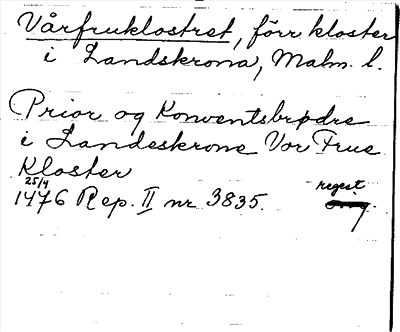 Vårfruklostret, förr kloster
i Landskrona, Malm. l.
Prior og Konventsbrødre
i Landeskrone Vor Frue
Kloster
25/4
1476 Rep. II nr 3835. regest
orig.